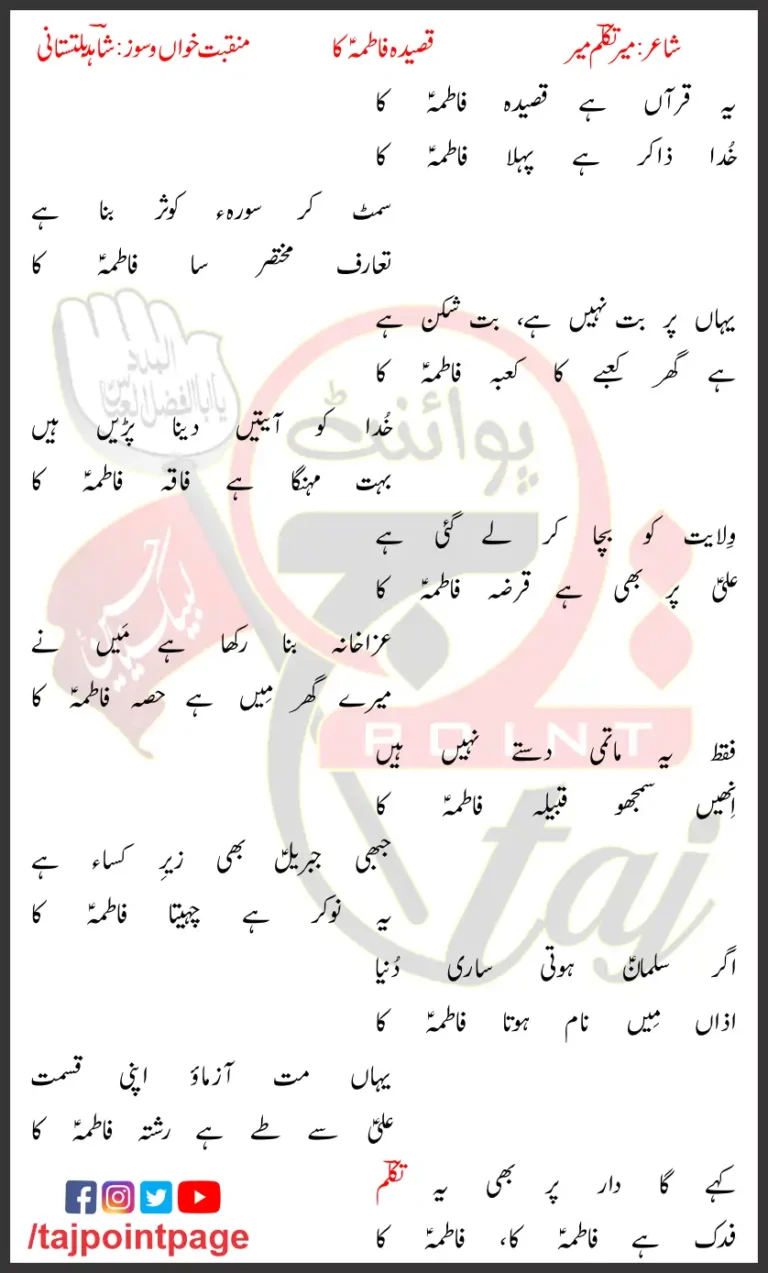 شاعر: میر تکلّم میر قصیدہ فاطمہؑ کا منقبت خواں و سوز: شاہد بلتستانی
یہ قرآں ہے قصیدہ فاطمہؑ کا
خُدا ذاکر ہے پہلا فاطمہؑ کا
سمٹ کر سورہء کوثر بنا ہے
تعارف مختصر سا فاطمہؑ کا
یہاں پر بت نہیں ہے، بت شکن ہے
ہے گھر کعبے کا کعبہ فاطمہؑ کا
خُدا کو آیتیں دینا پڑیں ہیں
بہت مہنگا ہے فاقہ فاطمہؑ کا
وِلایت کو بچا کر لے گئی ہے
علیؑ پر بھی ہے قرضہ فاطمہؑ کا
عزاخانہ بنا رکھا ہے مَیں نے
میرے گھر مِیں ہے حصہ فاطمہؑ کا
فقط یہ ماتمی دستے نہیں ہیں
اِنھیں سمجھو قبیلہ فاطمہؑ کا
جبھی جبریلؑ بھی زیرِ کساء ہے
یہ نوکر ہے چہیتا فاطمہؑ کا
اگر سلمانؑ ہوتی ساری دُنیا
اذاں مِیں نام ہوتا فاطمہؑ کا
یہاں مت آزماؤ اپنی قسمت
علیؑ سے طے ہے رشتہ فاطمہؑ کا
کہے گا دار پر بھی یہ تکلّم
فدک ہے فاطمہؑ کا، فاطمہؑ کا
/tajpointpage
المدد
یا ابالفضل العباس
لبیک یا حسین
پوائنٹ
تاج
POINT
taj